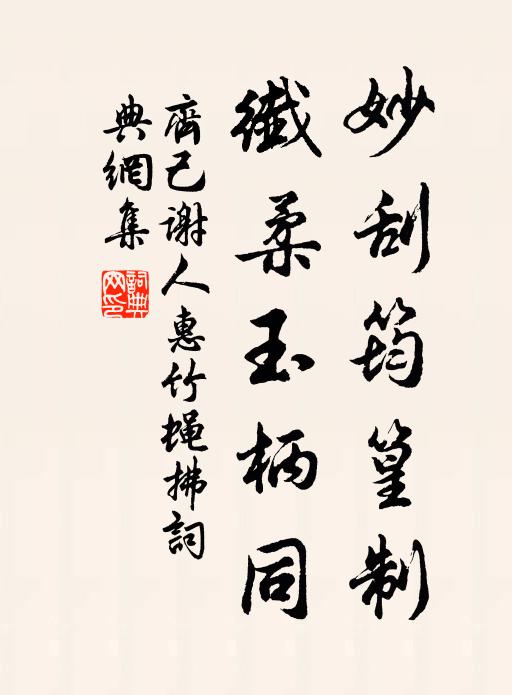 妙刮筠篁制
纖柔玉柄同
齊己謝人惠竹蝇拂詞
典網集
詞典
网印